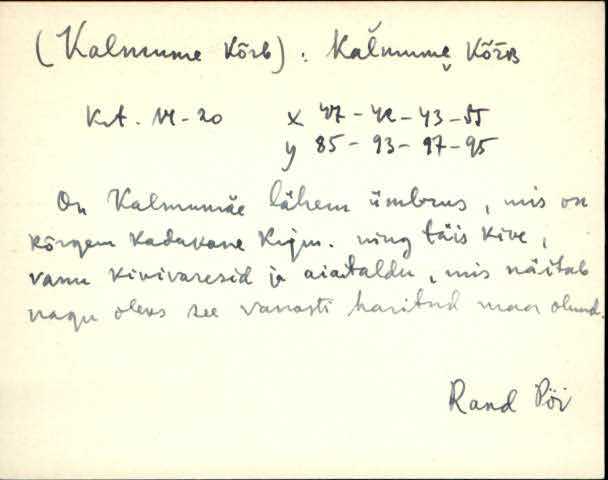 (Kalmume Kõrb) : Kalmume Kõrb
Krt. VI-20 x 47-42-43-55
y 85-93-97-95
On Kalmumäe lähem ümbrus, mis on
kõrgem kadakane kinjm. ning täis kive,
vanu kivivaresid ja aiataldu, mis näitab
nagu oleks see vanasti haritud maa olnud.
Rand Pöi